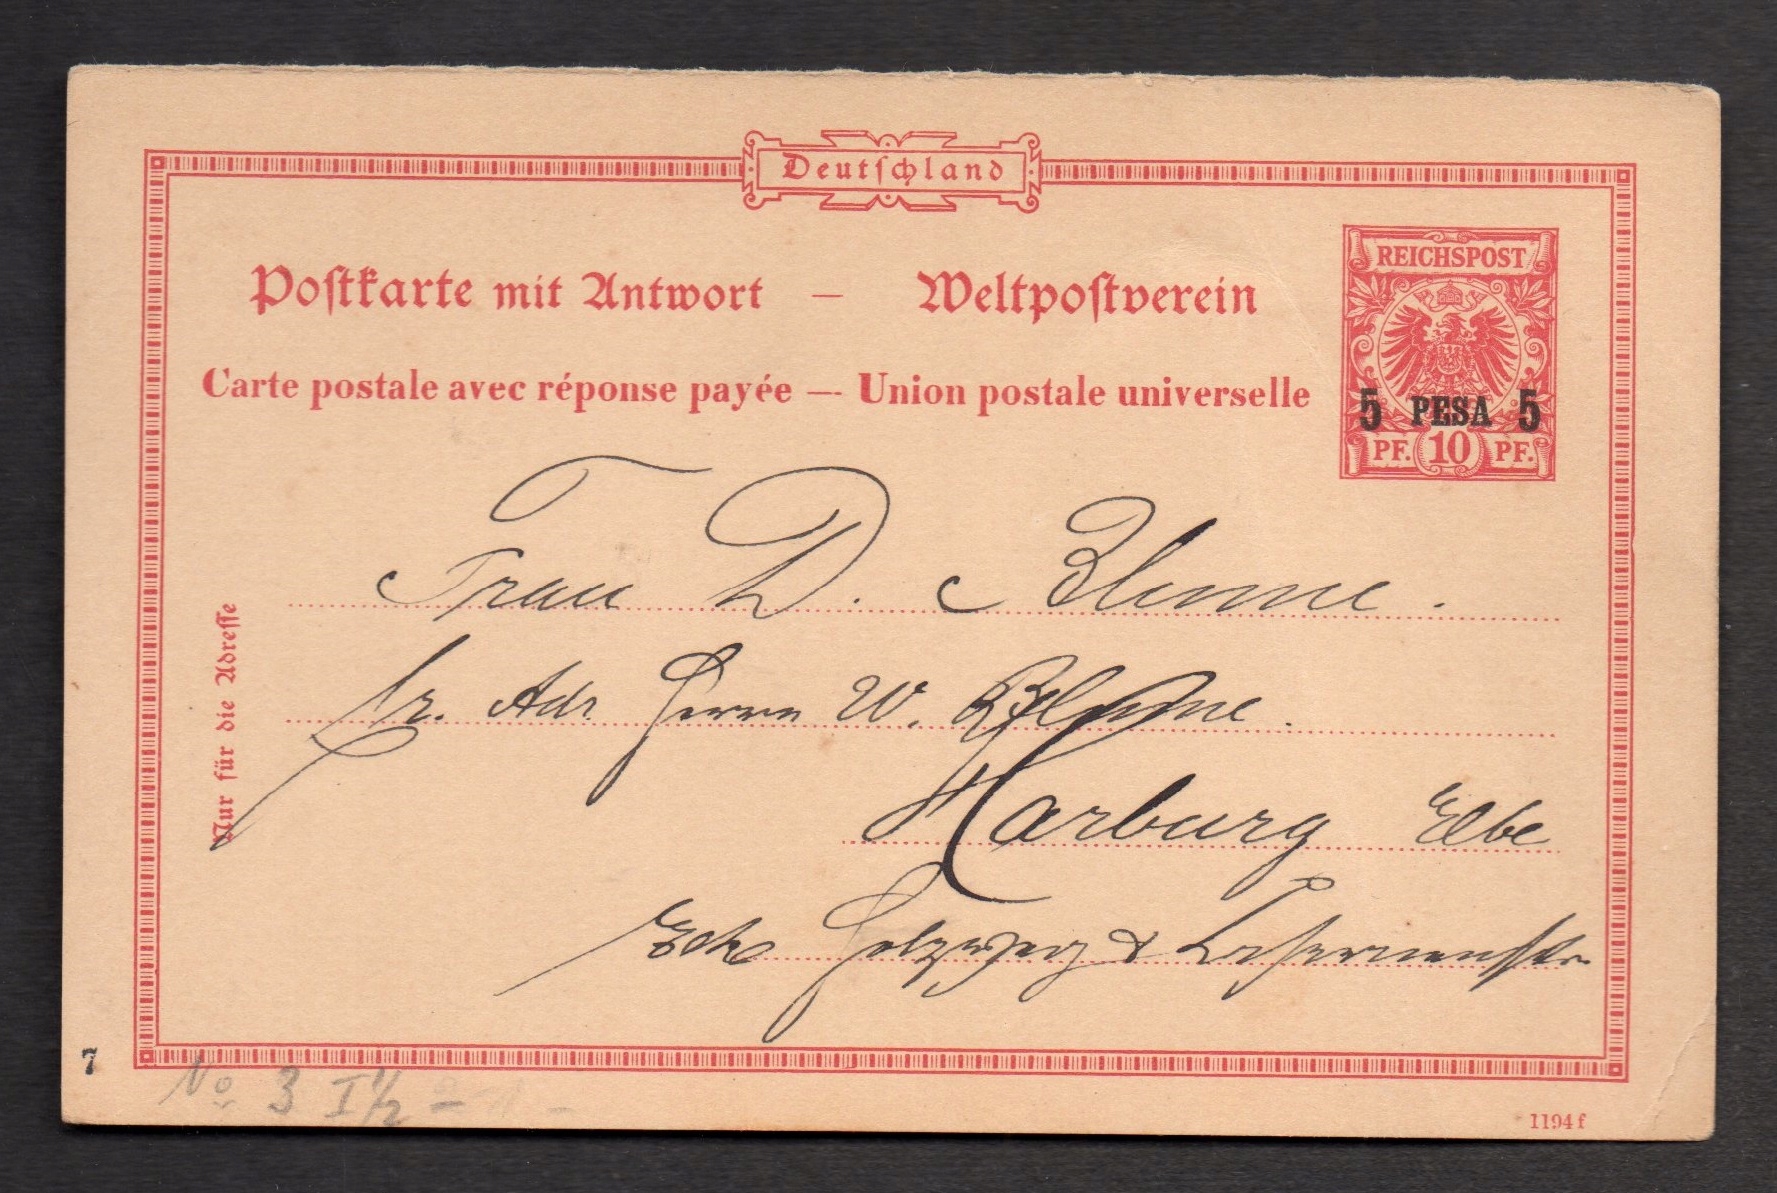 Deutſchland
REICHSPOST
Poſtkarte mit Antwort — Weltpoſtverein
Carte postale avec réponse payée — Union postale universelle
5 PESA 5
PF. 10 PF.
Frau D. Blume.
pr. Adr. Herrn W. Blume.
Harburg Elbe
Ecke Holzweg &
Nur für die Adreſſe
7
No. 3 I 1/2
1194 f